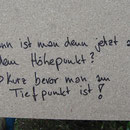 ann ist man denn jetzt a
dem Höhepunkt?
Kurz bevor man am
Tiefpunkt ist!